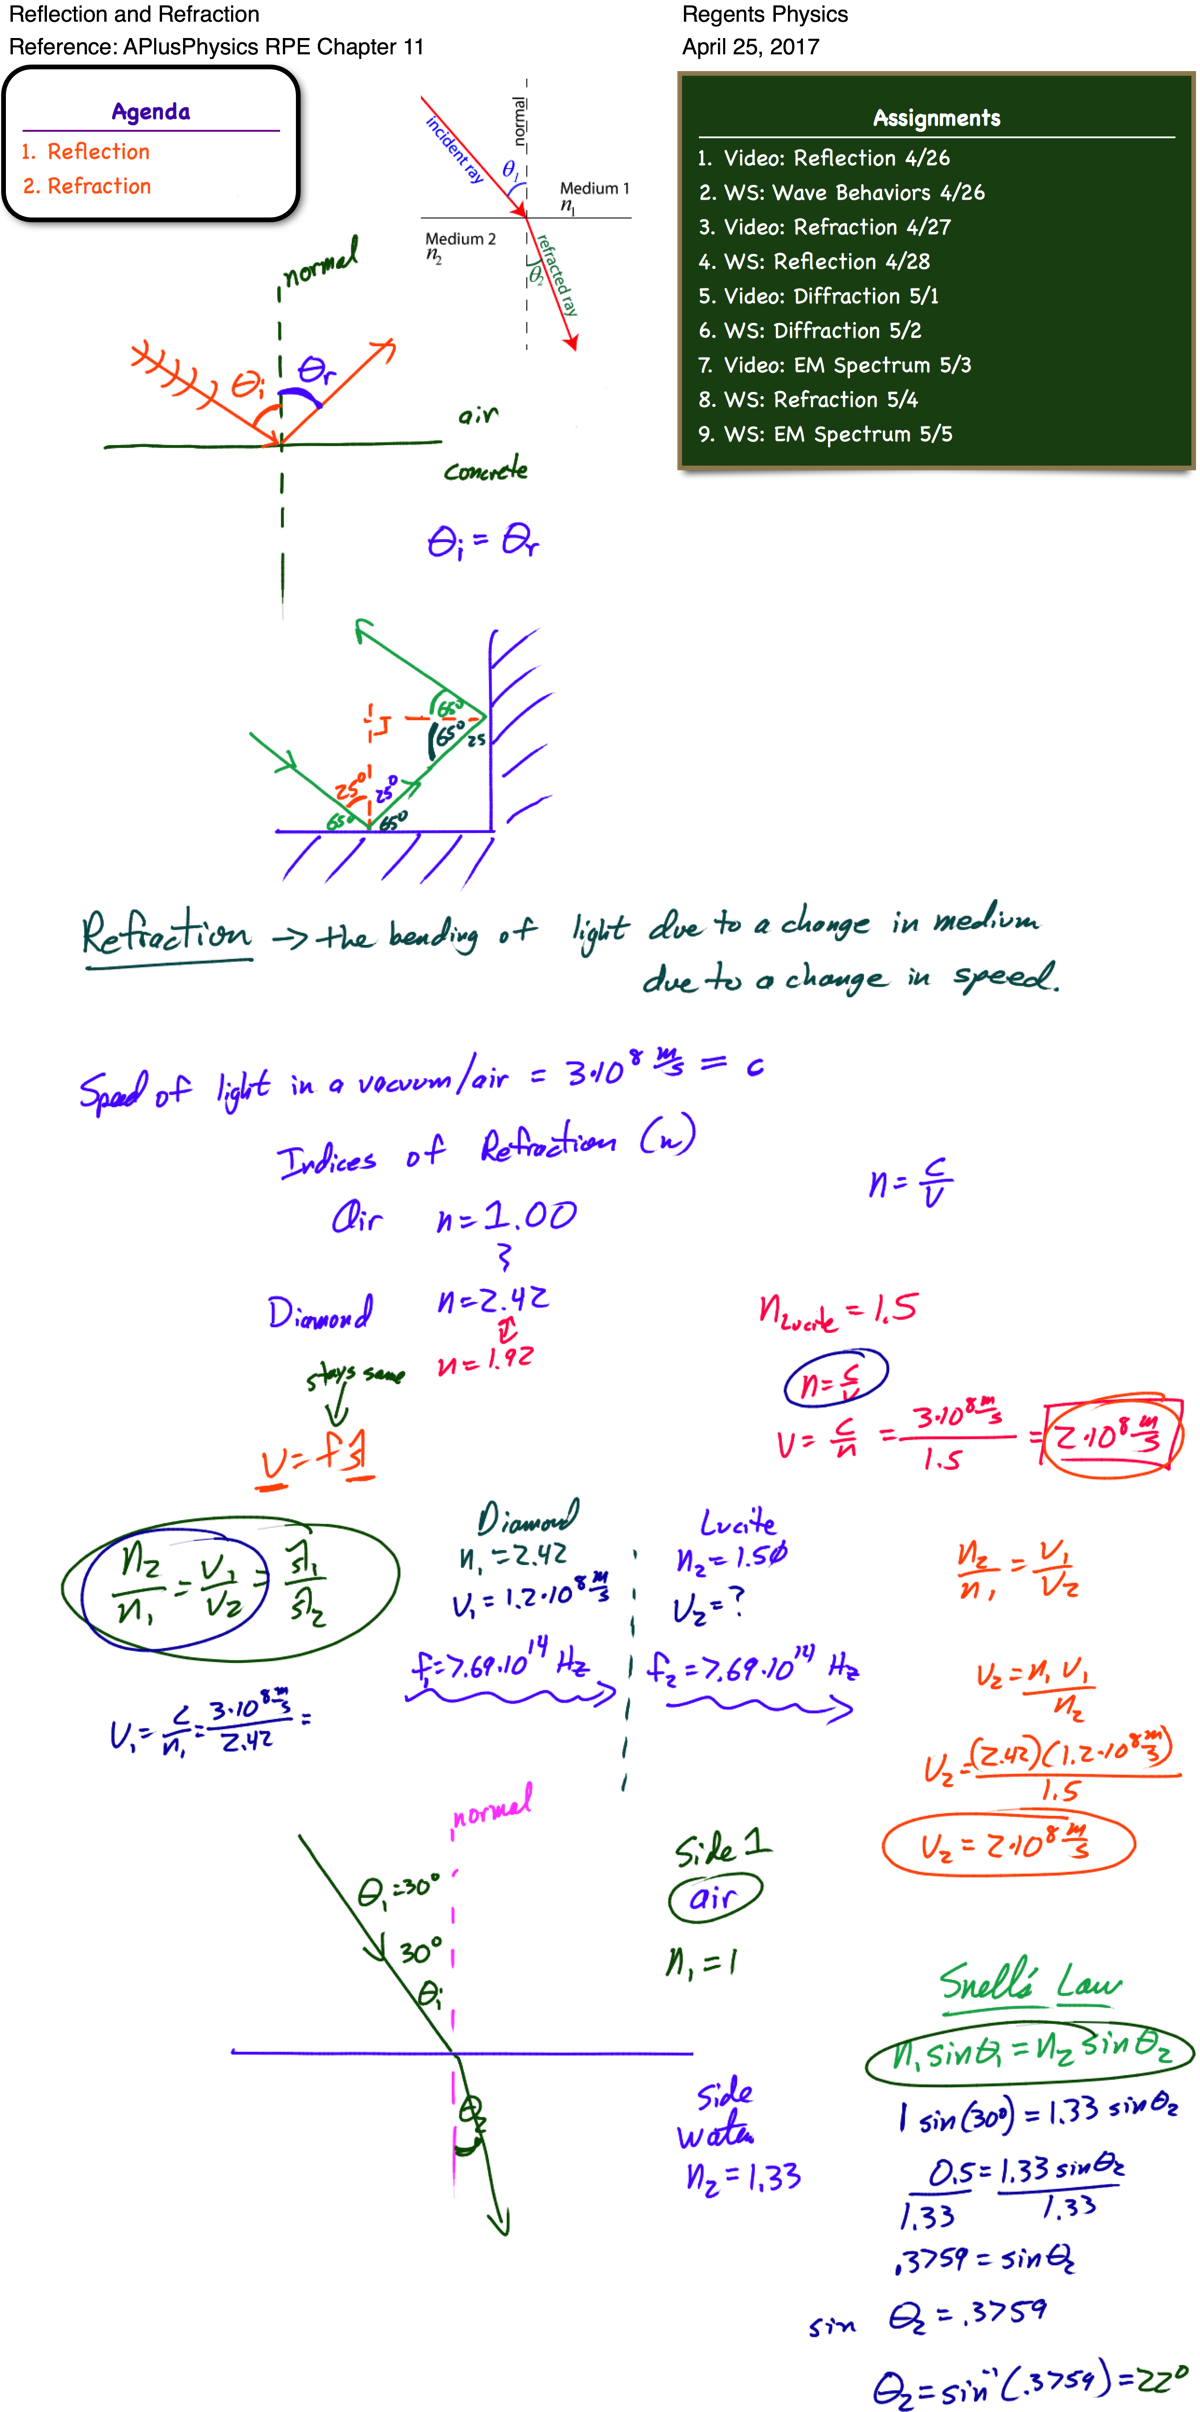 Reflection and Refraction
Reference: APlusPhysics RPE Chapter 11
Regents Physics
April 25, 2017
Agenda
1. Reflection
2. Refraction
Assignments
1. Video: Reflection 4/26
2. WS: Wave Behaviors 4/26
3. Video: Refraction 4/27
4. WS: Reflection 4/28
5. Video: Diffraction 5/1
6. WS: Diffraction 5/2
7. Video: EM Spectrum 5/3
8. WS: Refraction 5/4
9. WS: EM Spectrum 5/5
incident ray
normal
θ₁
Medium 1
n₁
Medium 2
n₂
θ₂
refracted ray
normal
θi
θr
air
concrete
θi = θr
65°
65°
25
25°
25°
65°
65°
Refraction → the bending of light due to a change in medium
due to a change in speed.
Speed of light in a vacuum/air = 3·10⁸ m/s = c
Indices of Refraction (n)
n = c/v
Air n = 1.00
Diamond n = 2.42
n = 1.92
n Lucite = 1.5
n = c/v
v = c/n = 3·10⁸ m/s / 1.5 = 2·10⁸ m/s
stays same
v = fλ
n₂/n₁ = v₁/v₂ = λ₁/λ₂
Diamond
n₁ = 2.42
v₁ = 1.2·10⁸ m/s
f₁ = 7.69·10¹⁴ Hz
Lucite
n₂ = 1.50
v₂ = ?
f₂ = 7.69·10¹⁴ Hz
v₁ = c/n₁ = 3·10⁸ m/s / 2.42 =
n₂/n₁ = v₁/v₂
v₂ = n₁v₁/n₂
v₂ = (2.42)(1.2·10⁸ m/s)/1.5
v₂ = 2·10⁸ m/s
normal
θ₁ = 30°
30°
θi
θ₂
Side 1
air
n₁ = 1
Side
water
n₂ = 1.33
Snell's Law
n₁ sinθ₁ = n₂ sinθ₂
1 sin(30°) = 1.33 sinθ₂
0.5/1.33 = 1.33 sinθ₂/1.33
.3759 = sinθ₂
sin θ₂ = .3759
θ₂ = sin⁻¹(.3759) = 22°